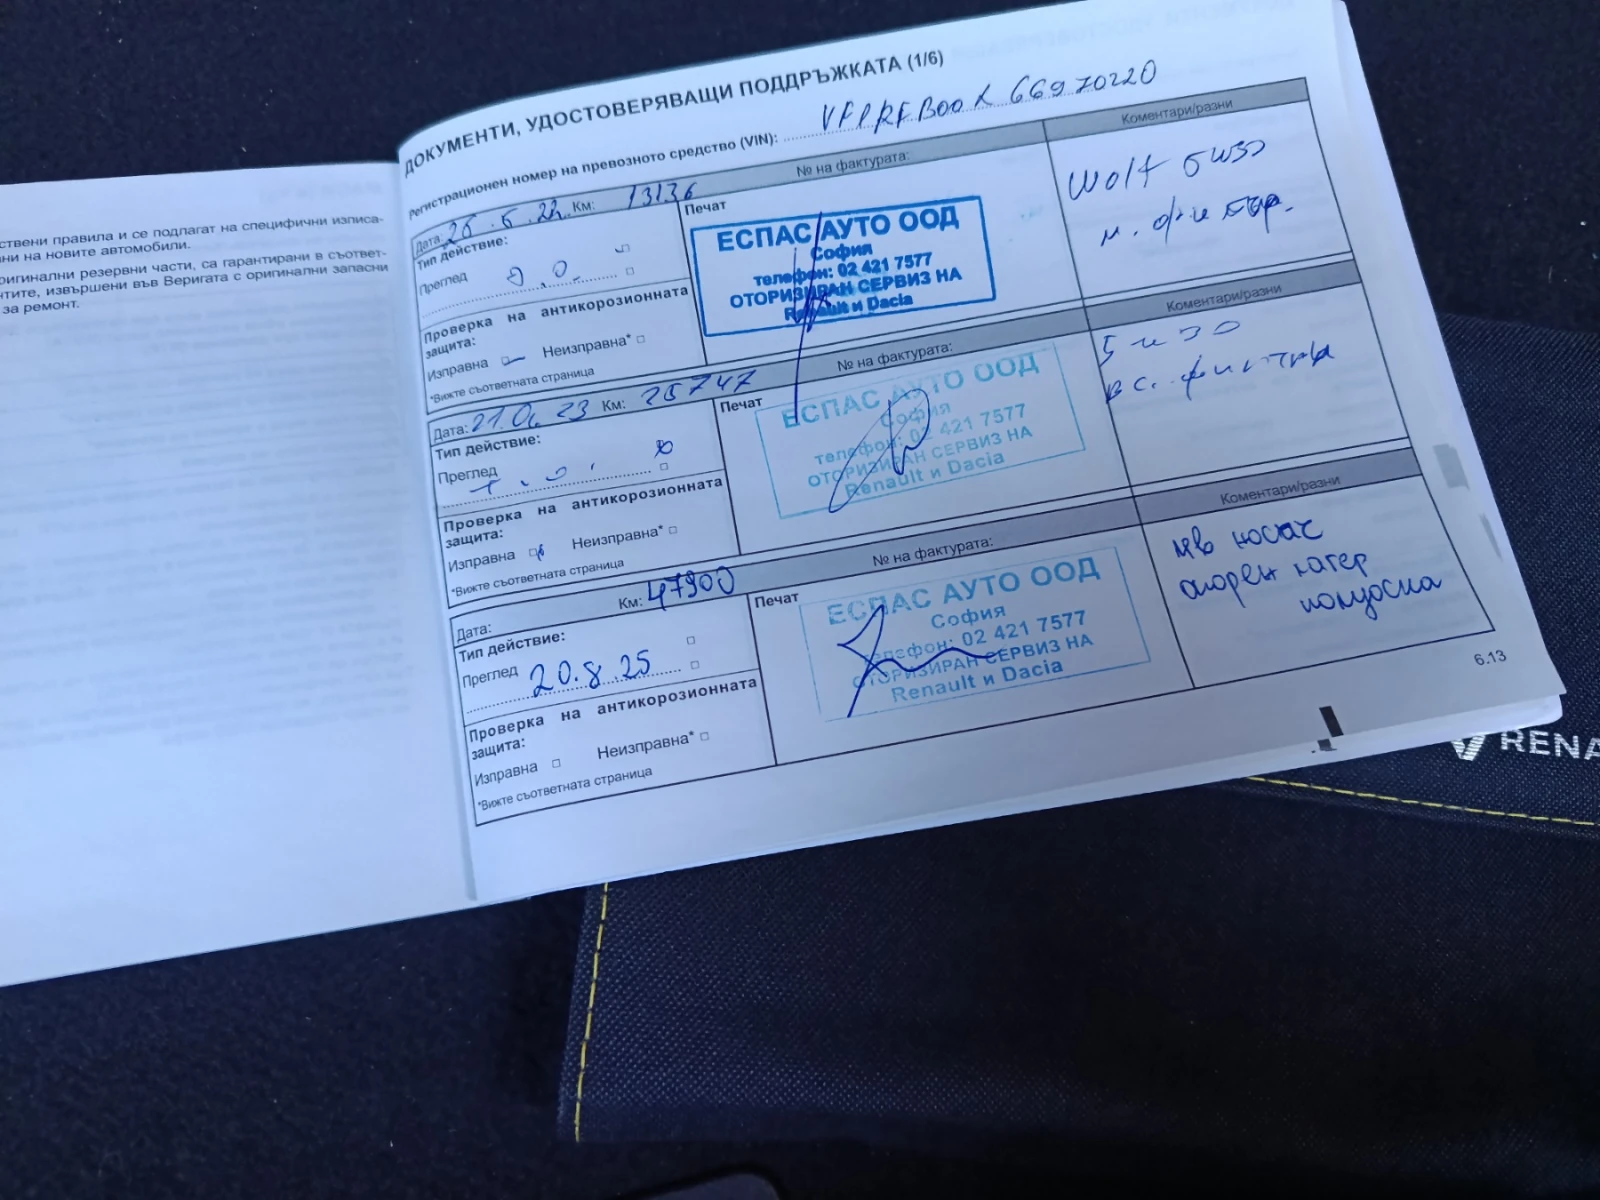 ствени правила и се подлагат на специфични изписа-
ни на новите автомобили.
ригинални резервни части, са гарантирани в съответ-
нтите, извършени във Веригата с оригинални запасни
за ремонт.
ДОКУМЕНТИ, УДОСТОВЕРЯВАЩИ ПОДДРЪЖКАТА (1/6)
Регистрационен номер на превозното средство (VIN):
Дата: 26.5.22 Км: 13136
№ на фактурата:
Коментари/разни
Тип действие:
Преглед
Проверка на антикорозионната
защита:
Изправна Неизправна*
*Вижте съответната страница
Печат
ЕСПАС АУТО ООД
София
телефон: 02 421 7577
ОТОРИЗИРАН СЕРВИЗ НА
Renault и Dacia
Wolf 5w30
м. филтър.
Дата: 23 Км: 25747
№ на фактурата:
Коментари/разни
Тип действие:
Преглед
Проверка на антикорозионната
защита:
Изправна Неизправна*
*Вижте съответната страница
Печат
ЕСПАС АУТО ООД
София
телефон: 02 421 7577
ОТОРИЗИРАН СЕРВИЗ НА
Renault и Dacia
вс. филтри
Дата: Км: 47900
№ на фактурата:
Коментари/разни
Тип действие:
Преглед 20.8.25
Проверка на антикорозионната
защита:
Изправна Неизправна*
*Вижте съответната страница
Печат
ЕСПАС АУТО ООД
София
телефон: 02 421 7577
ОТОРИЗИРАН СЕРВИЗ НА
Renault и Dacia
носач
опорен лагер
полуоска
6.13
RENA